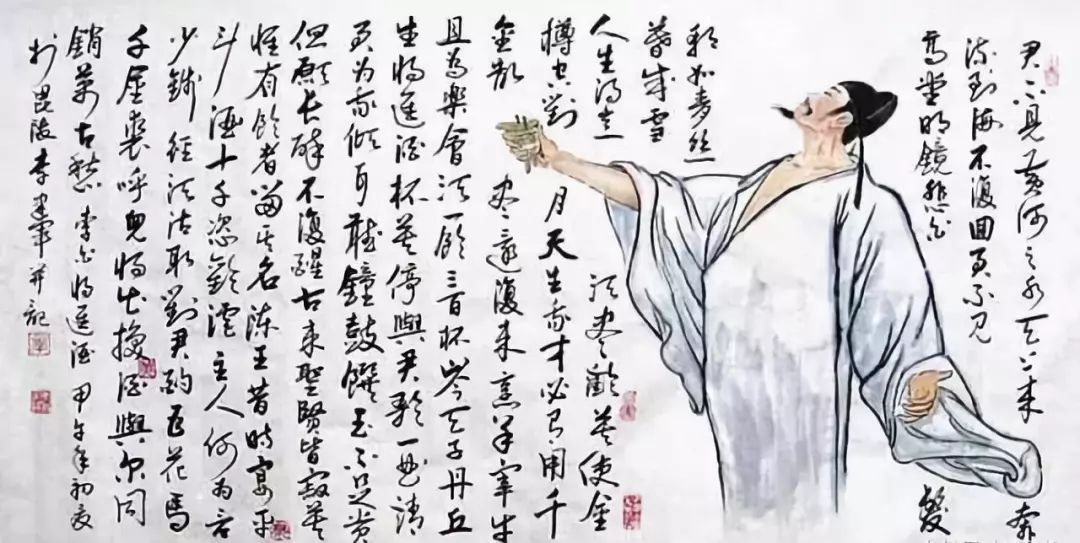 君不見黄河之水天上来奔
流到海不復回君不见
高堂明鏡悲白髮
朝如青丝
暮成雪
人生得意須尽歡莫使金
樽空對月天生我才必有用千
金散尽還復来烹羊宰牛
且為樂會须一飲三百杯岑夫子丹丘
生将進酒杯莫停與君歌一曲請
君为我倾耳聽鐘鼓饌玉不足贵
但願长醉不復醒古来聖賢皆寂莫
惟有飲者留其名陈王昔時宴平
斗酒十千恣歡谑主人何为言
少錢径须沽取對君酌五花馬
千金裘呼兒将出换酒與尔同
銷萬古愁 李白将進酒 甲午年初夏
于毘陵李军并記